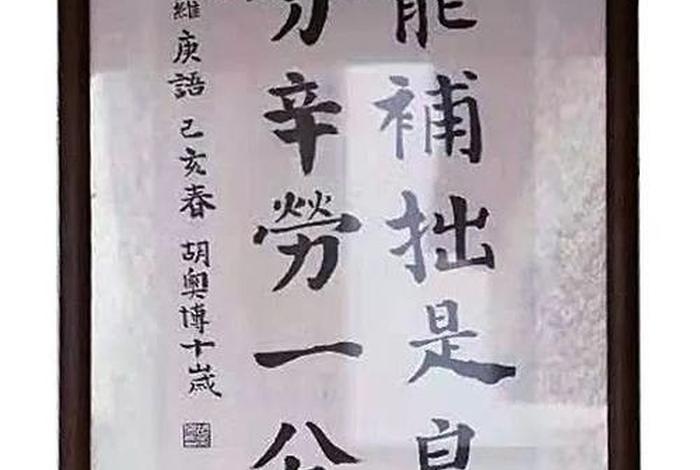 能補拙是良
分辛勞一分
維庚語 己亥春 胡奧博十歲